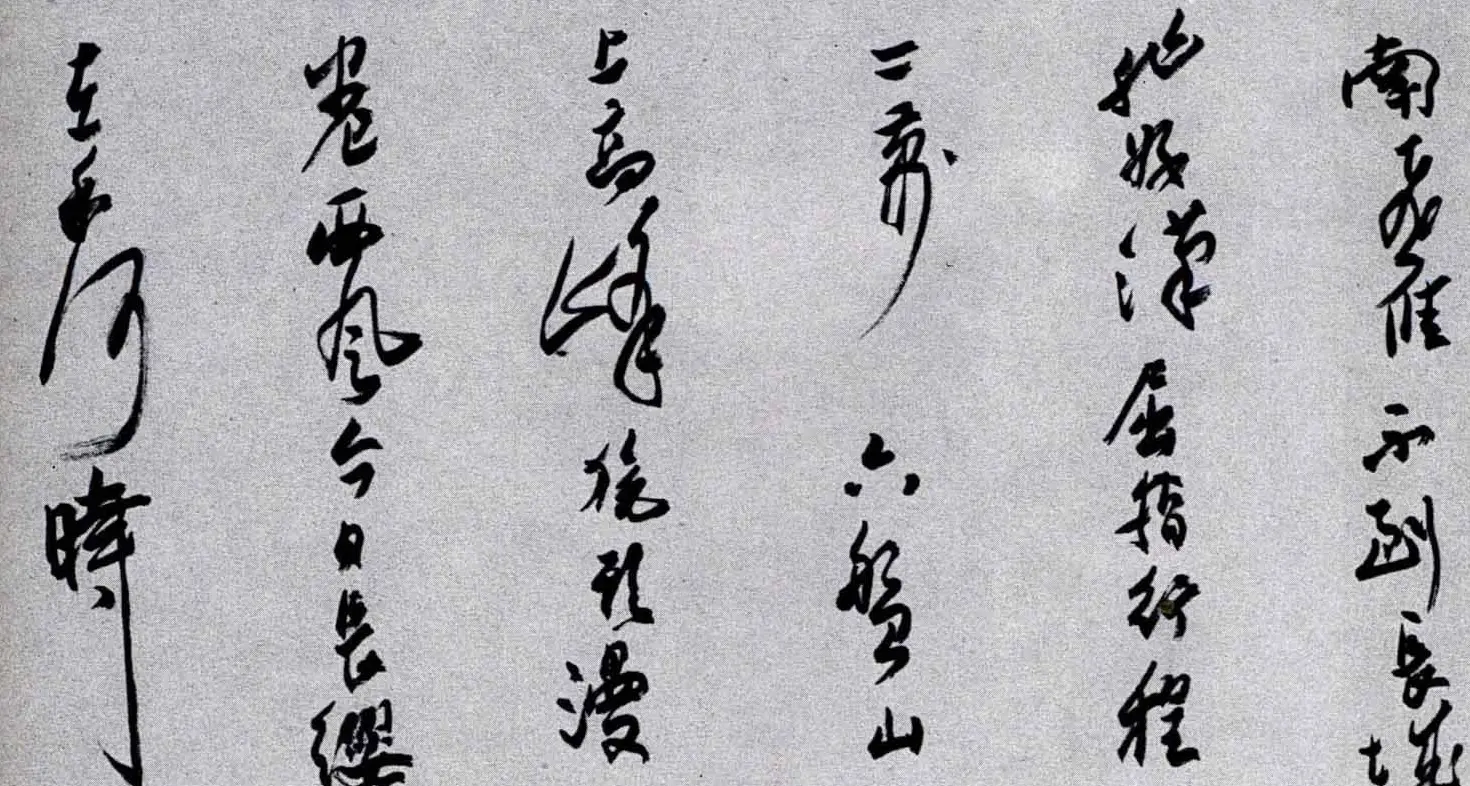 南飛雁不到長城
非好漢屈指行程
二萬六盤山
上高峰旄頭漫
卷西風今日長纓
在手何時